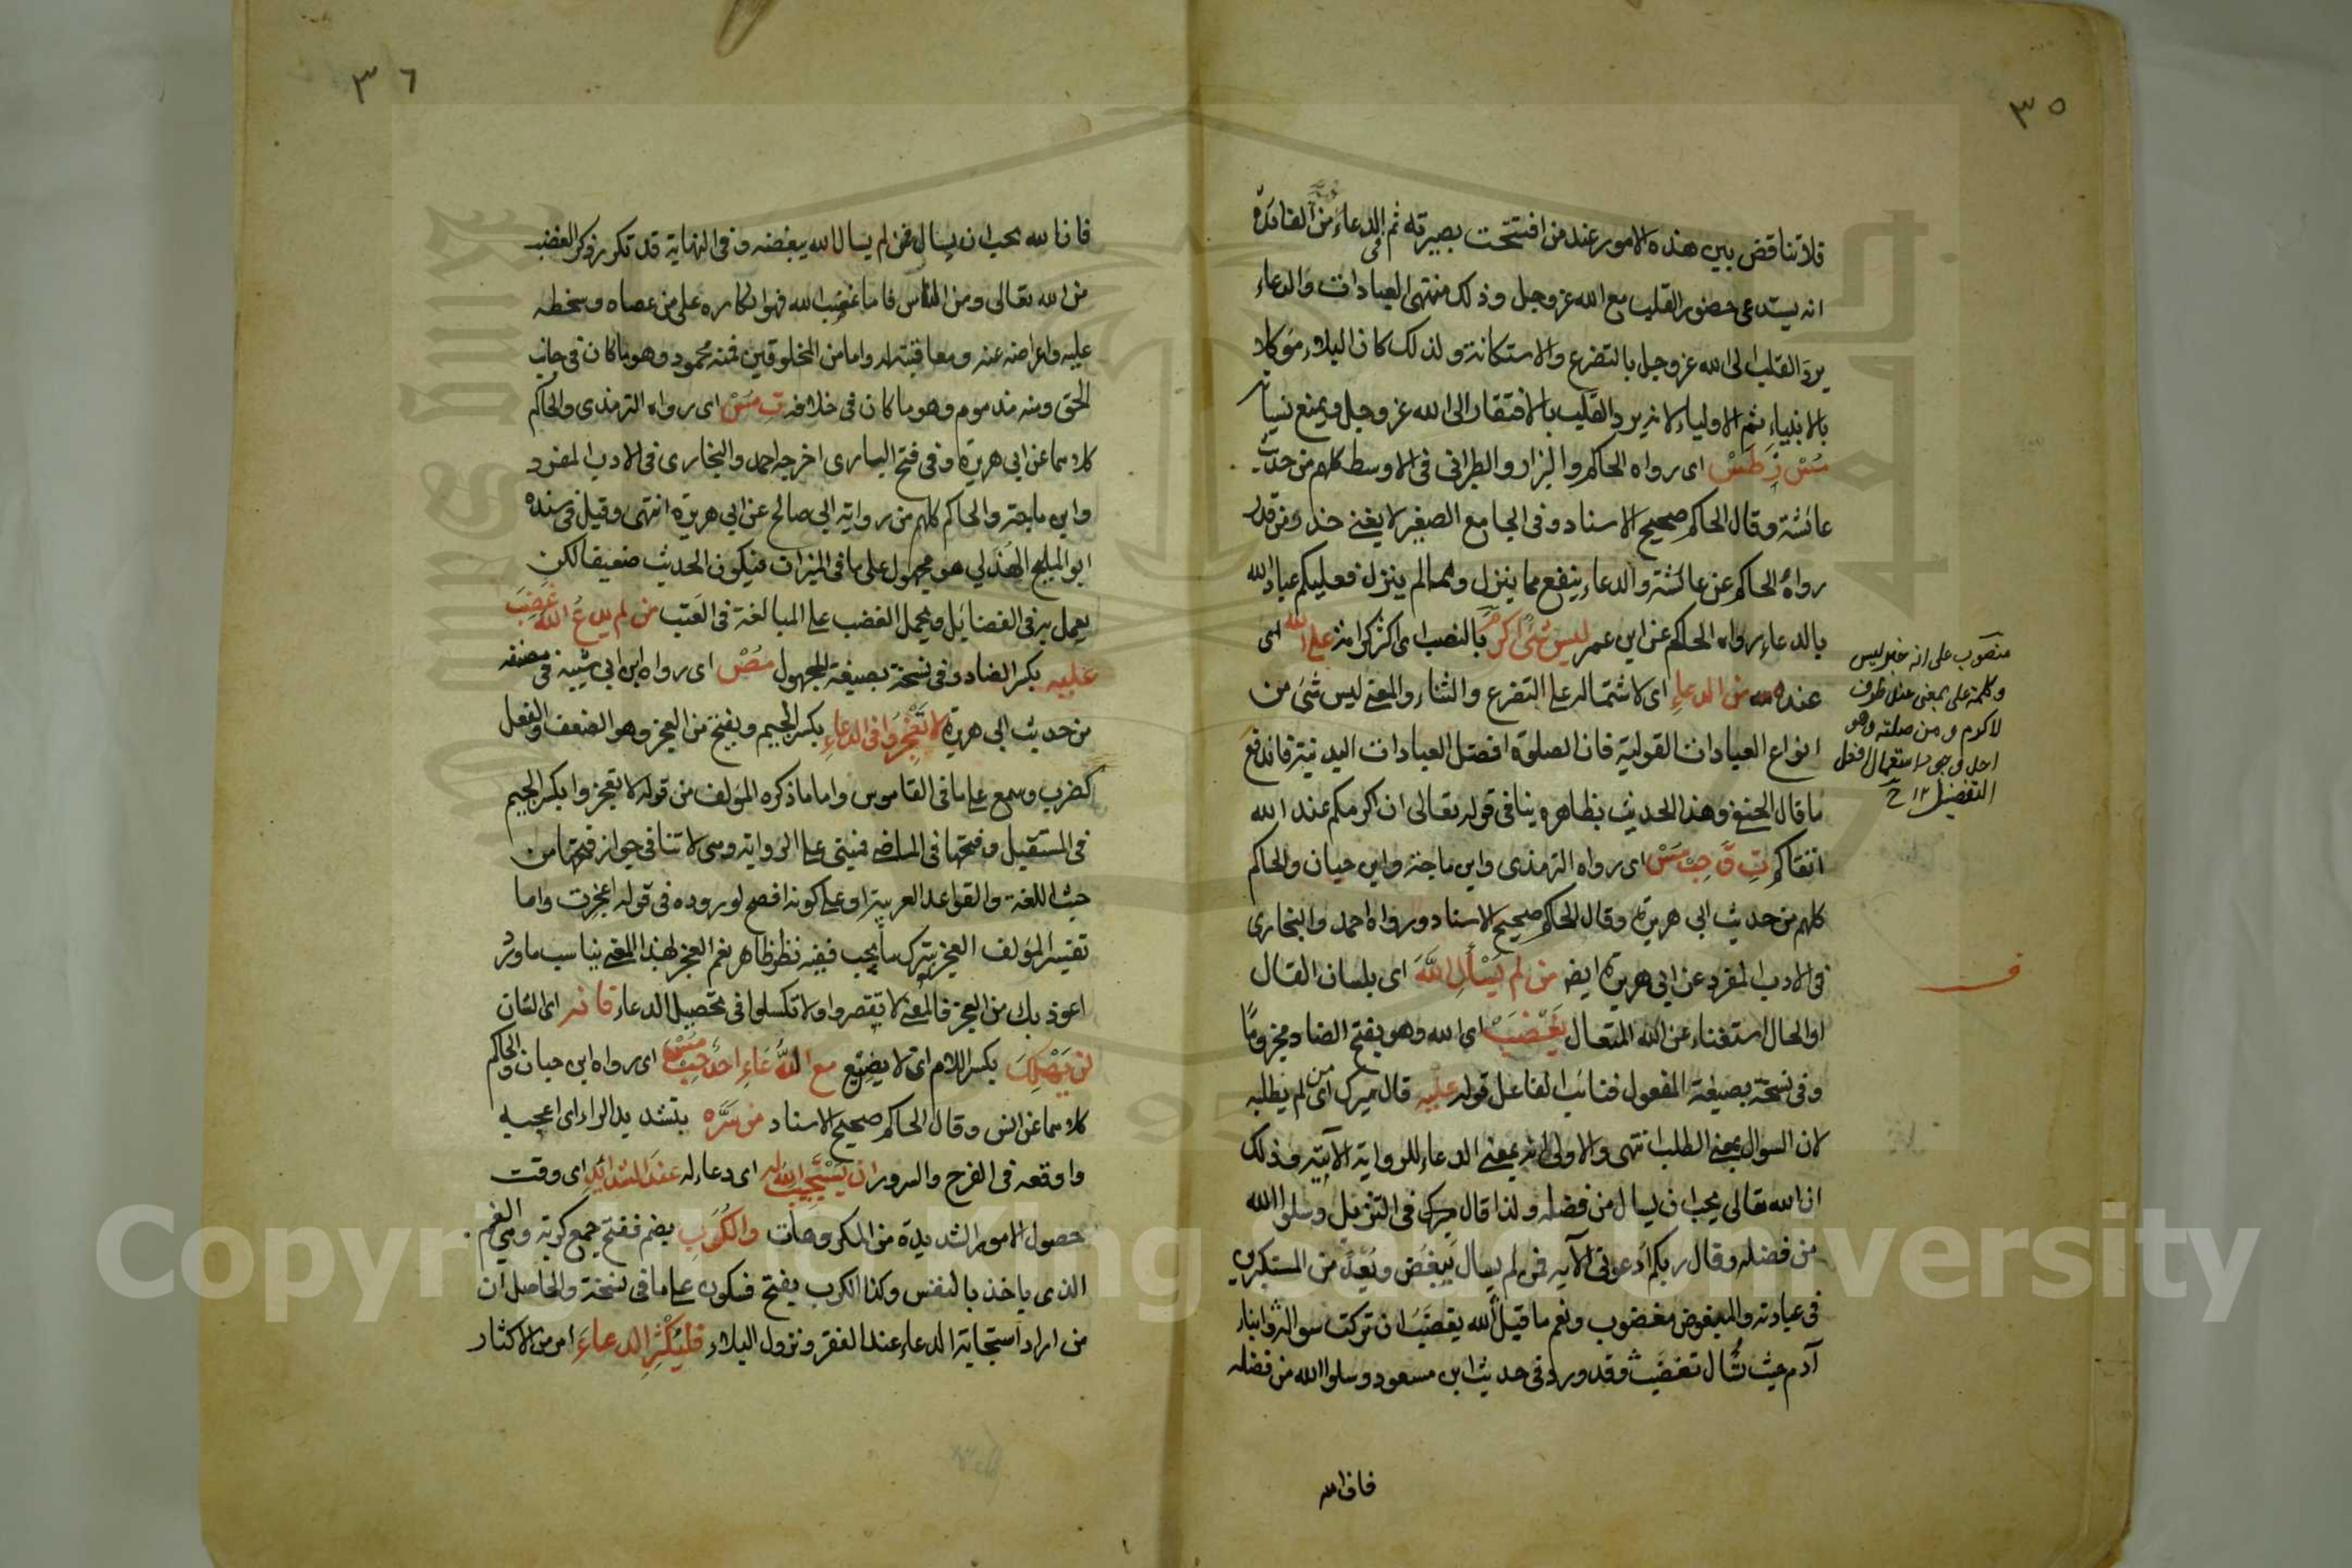 ٣٥
فلا تناقض بين هذه الامور عند من افتتحت بصيرته ثم فى الدعاء من الفائدة
انه يستدعى حضور القلب مع الله عز وجل وذلك منتهى العبادات والدعاء
يرد القلب الى الله عز وجل بالتضرع والاستكانة ولذلك كان البلاء موكلا
بالانبياء ثم الاولياء لانه يرد القلب بالافتقار الى الله عز وجل ويمنع نسيانه
مُسْ زَ طَسْ اى رواه الحاكم والبزار والطبرانى فى الاوسط كلهم من حديث
عائشة وقال الحاكم صحيح الاسناد وفى الجامع الصغير لا يغنى حذر من قدر
رواه الحاكم عن عائشة والدعاء ينفع مما ينزل ومما لم ينزل فعليكم عباد الله
بالدعاء رواه الحاكم عن ابن عمر ليس شئ اكرمَ بالنصب اى اكثر كرامة على الله اى
عنده من الدعاء اى لاشتماله على التضرع والثناء والمعنى ليس شئ من
انواع العبادات القولية فان الصلوة افضل العبادات البدنية فاندفع
ما قال الحنفى وهذا الحديث بظاهره ينافى قوله تعالى ان اكرمكم عند الله
اتقاكم تِ قَ حِبْ مُسْ اى رواه الترمذى وابن ماجة وابن حبان والحاكم
كلهم من حديث ابى هريرة وقال الحاكم صحيح الاسناد ورواه احمد والبخارى
فى الادب المفرد عن ابى هريرة ايضا من لم يَسْأَلِ اللَّهَ اى بلسان القال
او الحال استغناء عن الله المتعال يَغْضَبْ اى الله وهو بفتح الضاد مجزومًا
وفى نسخة بصيغة المفعول فنائب الفاعل قوله عليه قال ميرك اى من لم يطلبه
لان السوال بمعنى الطلب انتهى والاولى انه بمعنى الدعاء للرواية الآتية وذلك
ان الله تعالى يحب ان يسال من فضله ولذا قال ميرك فى التنزيل وسلوا الله
من فضله وقال ربكم ادعونى الآية فمن لم يسال يُبغَض ويُعدّ من المستكبرين
فى عبادته والمبغوض مغضوب ونعم ما قيل الله يغضب ان تركت سواله وابناء
آدم حيث تُسال تغضب وقد ورد فى حديث ابن مسعود وسلوا الله من فضله
فان الله
منصوب على انه خبر ليس
وكلمة على بمعنى عند ظرف
لاكرم و من صلته وهو
احد وجوه استعمال افعل
التفضيل ١٢ ح
ف
٣٦
فان الله يحب ان يسال فمن لم يسال الله يبغضه وفى النهاية قد تكرر ذكر الغضب
من الله تعالى ومن الناس فاما غضب الله فهو انكاره على من عصاه وسخطه
عليه واعراضه عنه ومعاقبته له واما من المخلوقين فمنه محمود وهو ما كان فى جانب
الحق ومنه مذموم وهو ما كان فى خلافه تِ مُسْ اى رواه الترمذى والحاكم
كلاهما عن ابى هريرة وفى فتح البارى اخرجه احمد والبخارى فى الادب المفرد
وابن ماجة والحاكم كلهم من رواية ابى صالح عن ابى هريرة انتهى وقيل فى سنده
ابو المليح الهذلي هو مجهول على ما فى الميزان فيكون الحديث ضعيفا لكن
يعمل به فى الفضائل ويحمل الغضب على المبالغة فى العَتب من لم يدعُ الله غَضِبَ
عليه بكسر الضاد وفى نسخة بصيغة المجهول مُصْ اى رواه ابن ابى شيبة فى مصنفه
من حديث ابى هريرة لا تَعْجِزُوا فى الدعاءِ بكسر الجيم وبفتح من العجز وهو الضعف والفعل
كضرب وسمع على ما فى القاموس واما ما ذكره المؤلف من قوله لا تعجزوا بكسر الجيم
فى المستقبل وفتحها فى الماضى فيبتنى على الرواية وهى لا تنافى جواز فتحها من
حيث اللغة والقواعد العربية او على كونه افصح لوروده فى قوله اعجزت واما
تفسير المؤلف العجز بترك ما يجب ففيه نظر ظاهر نعم العجز لهذا المعنى يناسب ما ورد
اعوذ بك من العجز فالمعنى لا تقصروا ولا تكسلوا فى تحصيل الدعاء فانه اى الشان
لن يَهْلِكَ بكسر اللام اى لا يضيع مع الدُّعَاءِ احدٌ حِبْ مُسْ اى رواه ابن حبان والحاكم
كلاهما عن انس وقال الحاكم صحيح الاسناد من سَرَّه بتشديد الراء اى اعجبه
واوقعه فى الفرح والسرور ان يَسْتَجِيبَ الله له اى دعاءه له عند الشدائد اى وقت
حصول الامور الشديدة من المكروهات والكُرَبِ بضم ففتح جمع كربة وهى الغم
الذى ياخذ بالنفس وكذا الكرب بفتح فسكون على ما فى نسخة والحاصل ان
من اراد استجابة الدعاء عند الفقر ونزول البلاء فليُكْثِرِ الدعاءَ امر من الاكثار
Copyright © King Saud University